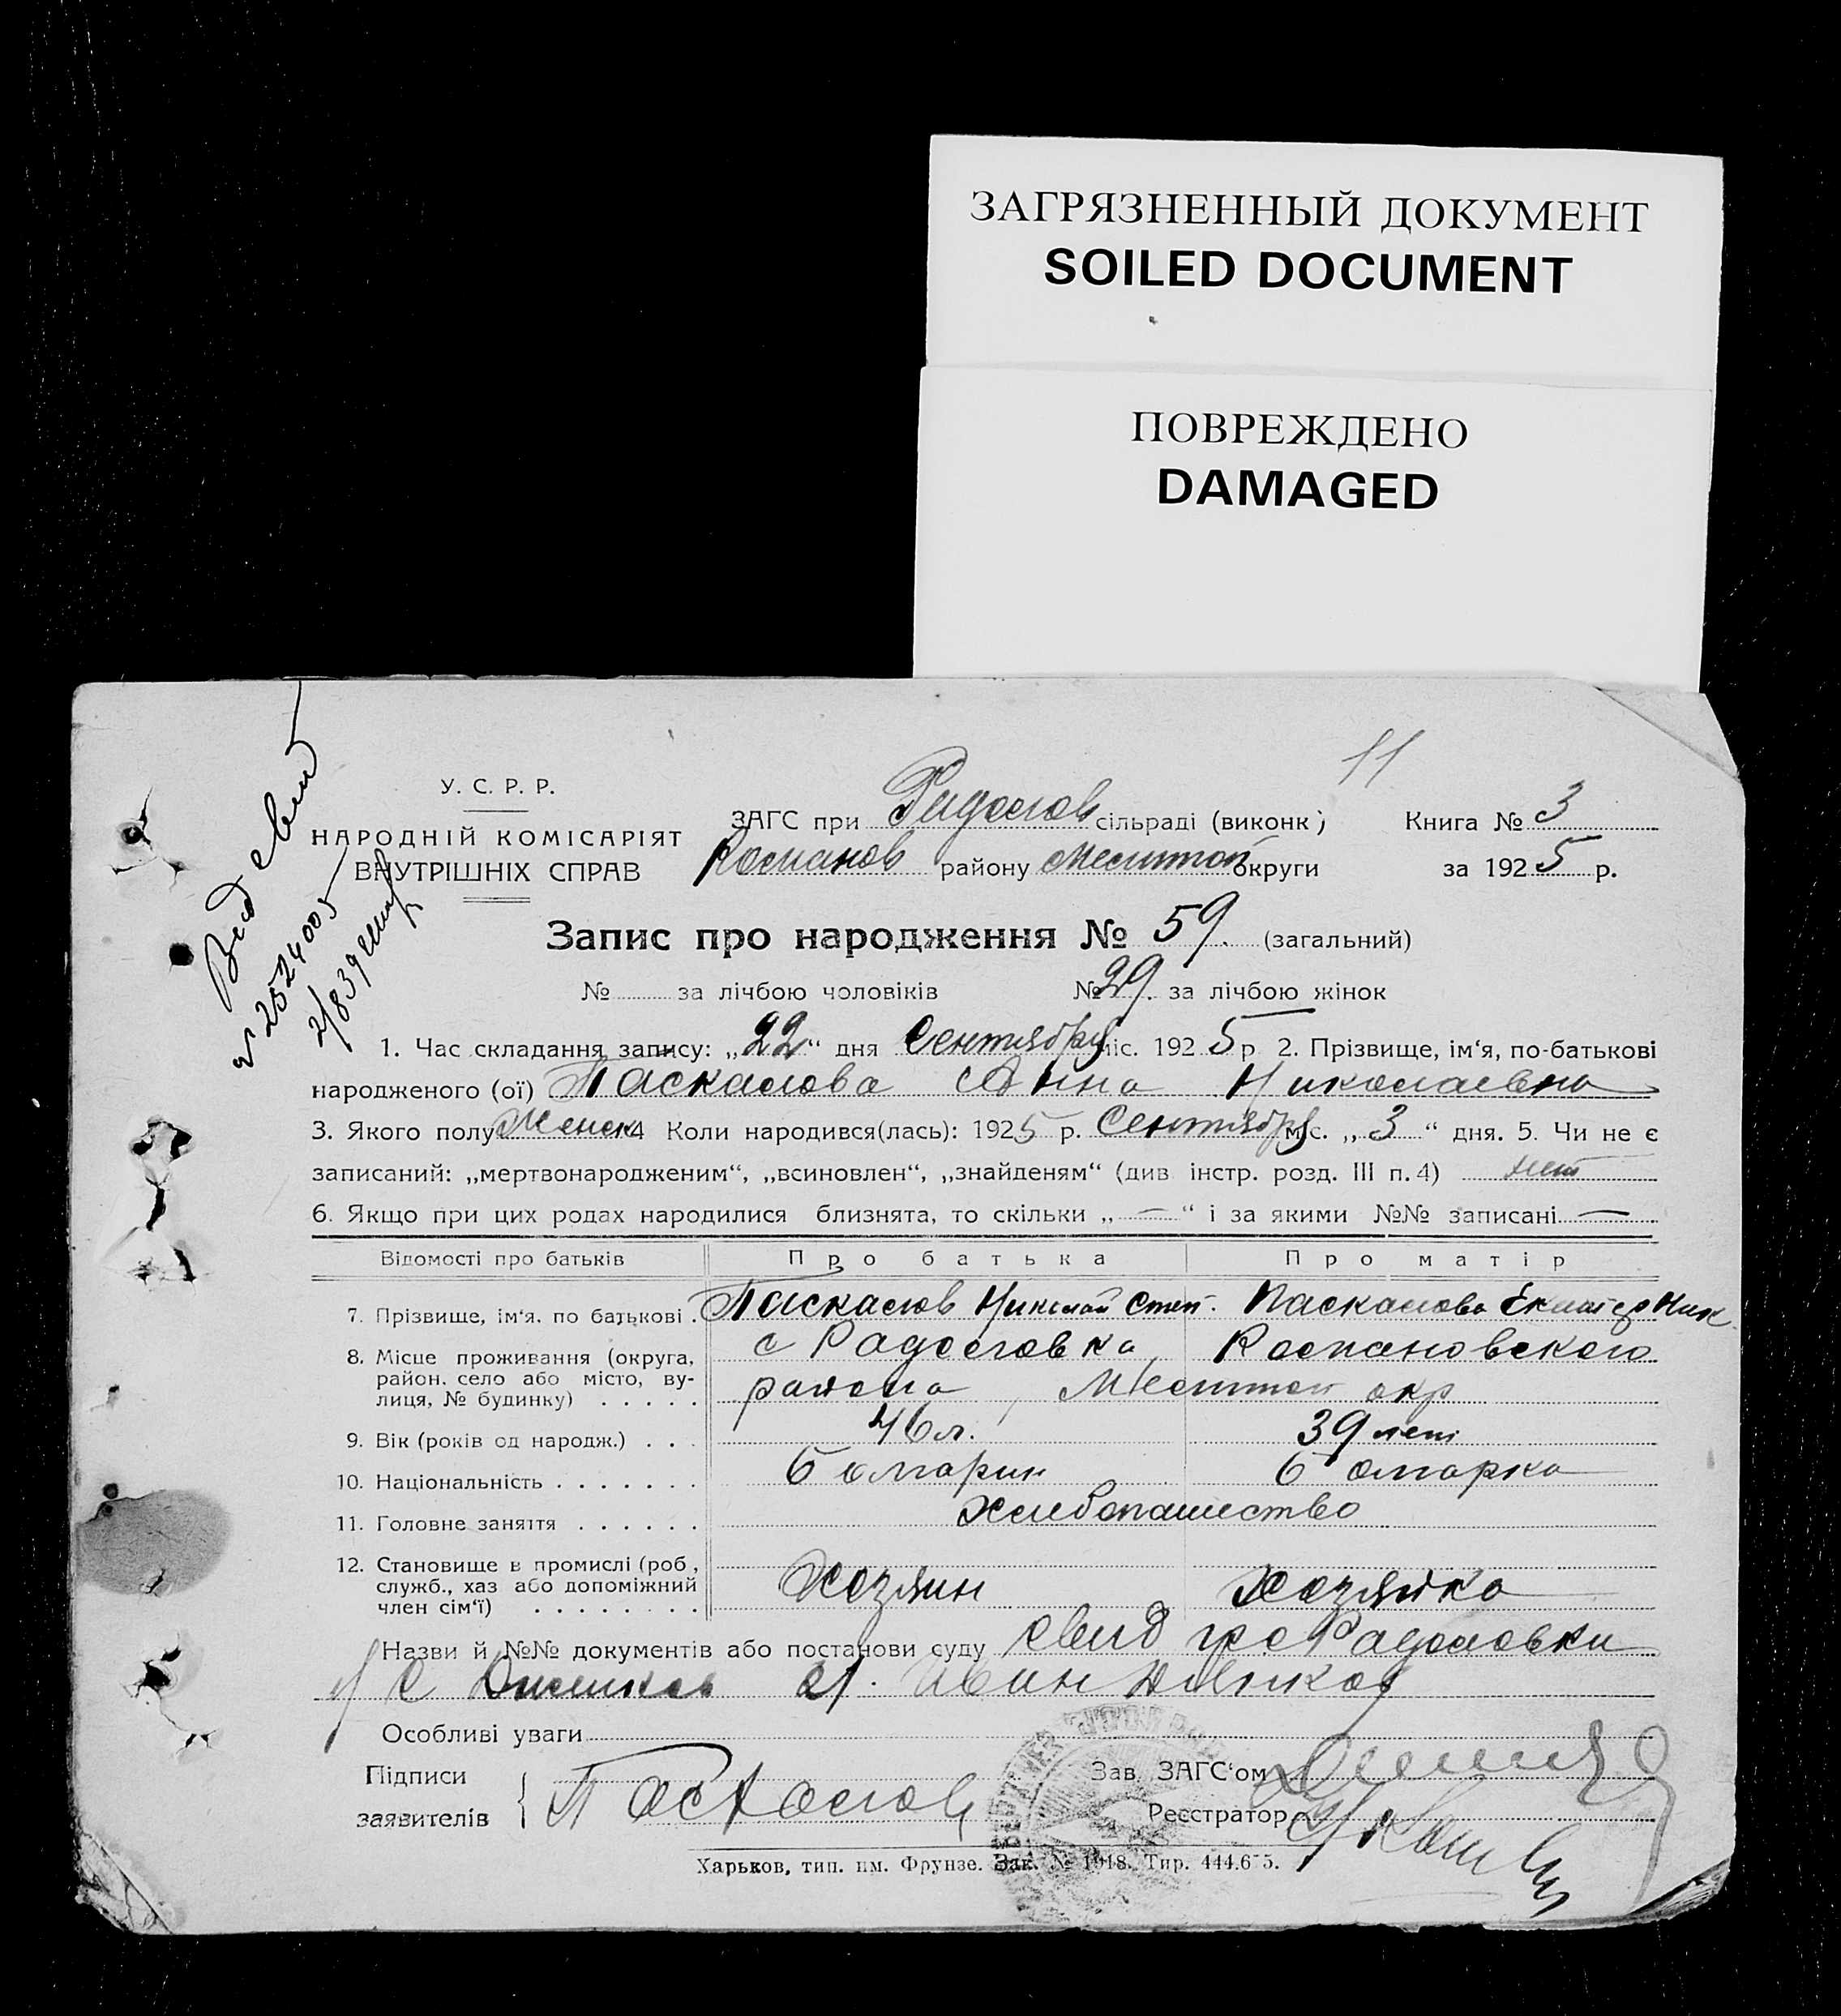 ЗАГРЯЗНЕННЫЙ ДОКУМЕНТ
SOILED DOCUMENT
ПОВРЕЖДЕНО
DAMAGED
11
У. С. Р. Р.
НАРОДНІЙ КОМІСАРІЯТ
ВНУТРІШНІХ СПРАВ
ЗАГС при сільраді (виконк.)
Книга № 3
району округи
за 1925 р.
Запис про народження № 59. (загальний)
№ за лічбою чоловіків № 29. за лічбою жінок
1. Час складання запису: „22“ дня Сентября міс. 1925 р 2. Прізвище, ім‘я, по-батькові
народженого (ої) Паскалова Анна Николаевна
3. Якого полу Женск 4 Коли народився(лась): 1925 р. Сентября міс. „3“ дня. 5. Чи не є
записаний: „мертвонародженим“, „всиновлен“, „знайденям“ (див. інстр. розд. III п. 4) нет
6. Якщо при цих родах народилися близнята, то скільки „—“ і за якими №№ записані —
Відомості про батьків Про батька Про матір
7. Прізвище, ім‘я. по батькові . Паскалов Николай Степ. Паскалова Екатер Ник.
8. Місце проживання (округа, район. село або місто, вулиця, № будинку) . . . . . с Радоловка, Романовского
района, Мелитоп окр
9. Вік (років од народж.) . . . 46 л. 39 лет
10. Національність . . . . . . . болгарин болгарка
11. Головне заняття . . . . . . Хлебопашество
12. Становище в промислі (роб., служб., хаз або допоміжний член сім‘ї) . . . . . . . . Хозяин Хозяйка
Назви й №№ документів або постанови суду свид
Иван
Особливі уваги
Підписи
заявителів
Паскалов
Зав. ЗАГС‘ом
Реєстратор
Харьков, тип. им. Фрунзе. Зак. № 1948. Тир. 444.675.